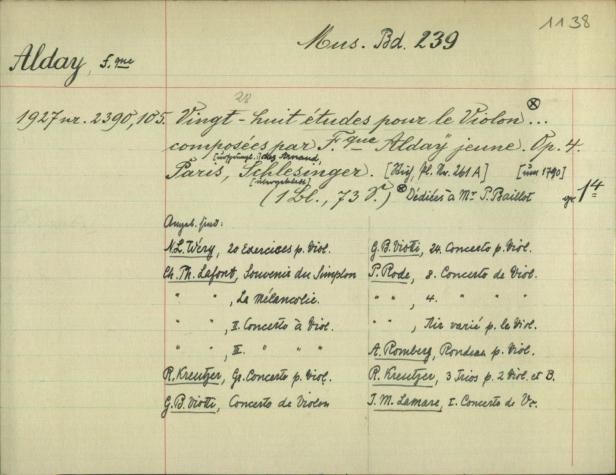 1138
Mus. Bd. 239
Alday, F.que
28
1927 nr. 2390,105. Vingt-huit études pour le Violon ... ⊗
composées par F.que Alday jeune. Op. 4.
[ursprüngl.:] chez Armand,
Paris, Schlesinger. [Pl. Nr. 261 A] [um 1790]
[übergeklebt]
(1 Bl., 73 S.) ⊗ Dédiées à Mr P. Baillot gr. 4
Angeb. sind:
N.L. Wery, 20 Exercices p. Viol.
Ch. Ph. Lafont, Souvenir du Simplon
" " , La Mélancolie.
" " , II. Concerto à Viol.
" " , III. " " "
R. Kreutzer, Gr. Concerto p. Viol.
G.B. Viotti, Concerto de Violon
G.B. Viotti, 24. Concerto p. Viol.
P. Rode, 8. Concerto de Viol.
" " , 4. " " "
" " , Air varié p. le Viol.
A. Romberg, Rondeau p. Viol.
R. Kreutzer, 3 Trios p. 2 Viol. et B.
J. M. Lamare, I. Concerto de Vc.